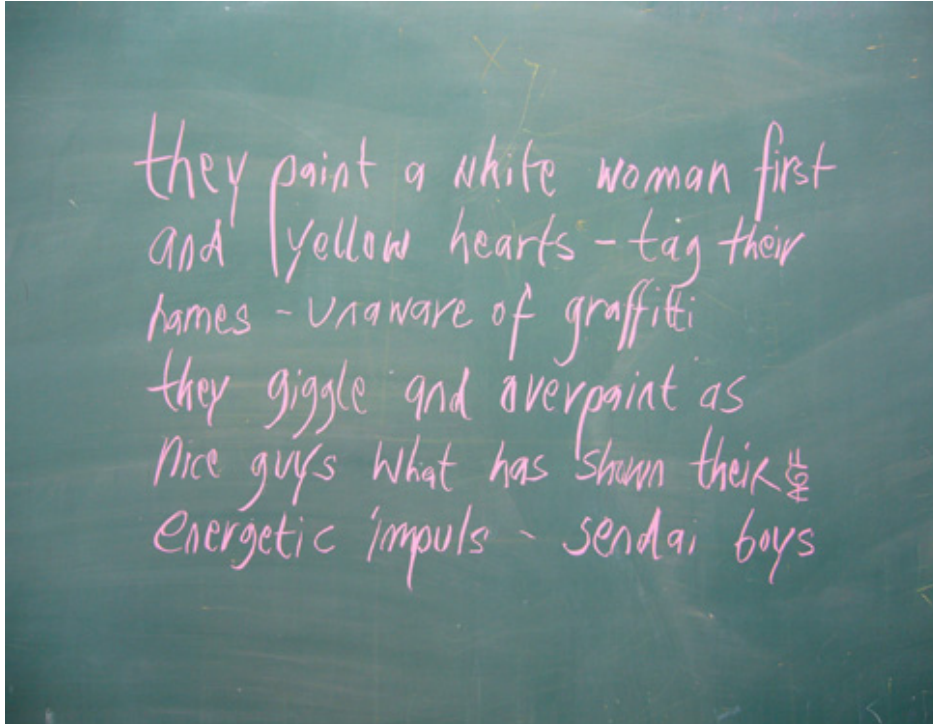 they paint a white woman first
and yellow hearts - tag their
names - unaware of graffitti
they giggle and overpaint as
nice guys what has shown their
energetic impuls - sendai boys
AGF